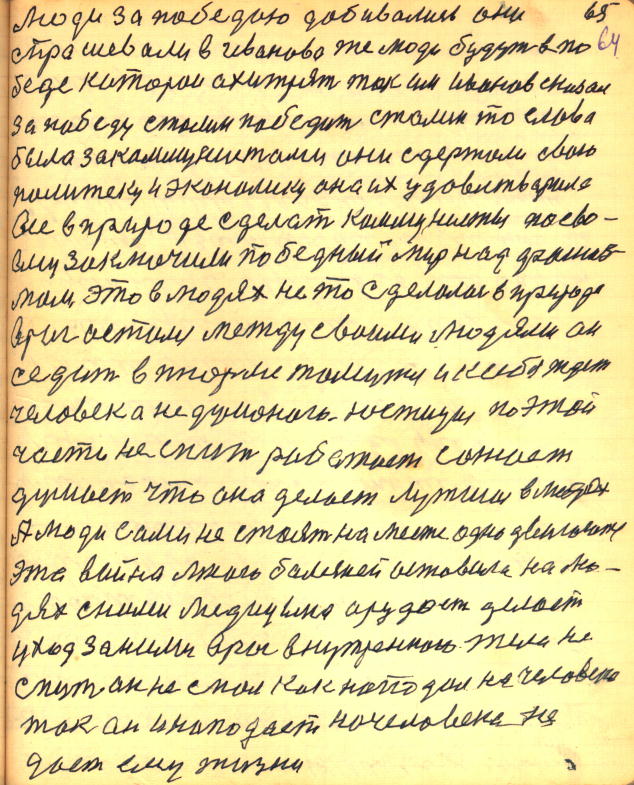 Люди за победою добивались они 65
страшевали в Иваново же люди будут в по 64
беде которои ахитрят так им Иванов сказал
за победу сталин победит сталин то слова
была за коммунистами они сдержали свою
политеку и экономику она их удовлитварила
Все в природе сделат коммунисты посво-
ему заключили победный мир над
мом это в людях не то сделалос в природе
враг остался между своими людями он
седит в тюрме и к себе ждет
человека не думоного юстиция по этой
части не спит работает сожает
думоет что она делоет лутшея в людях
А люди сами не стоят на месте одно двигаюца
эта война много балезней оставила на лю-
дях сними медицина арудоет делоет
уход за ними враг внутренного тела не
спит он не спал как нападал на человека
так он и нападает на человека не
дает ему жизни